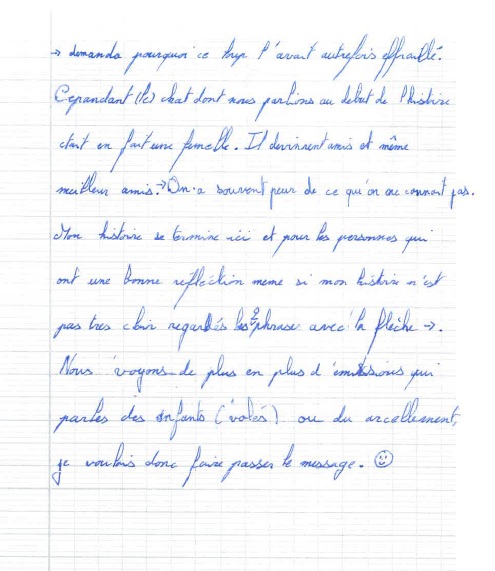 → demanda pourquoi ce truc l'avait autrefois effraillé.
Cependant (le) chat dont nous parlions au debut de l'histoire
était en fait une femelle. Il devinrent amis et même
meilleur amis. → On a souvent peur de ce qu'on ne connait pas.
Mon histoire se termine ici et pour les personnes qui
ont une bonne reflection meme si mon histoire n'est
pas tres clair regardés les 2 phrases avec la flèche →.
Nous voyons de plus en plus d'émissions qui
parles des enfants (volés) ou du arcellement,
je voulais donc faire passer le message. ☺